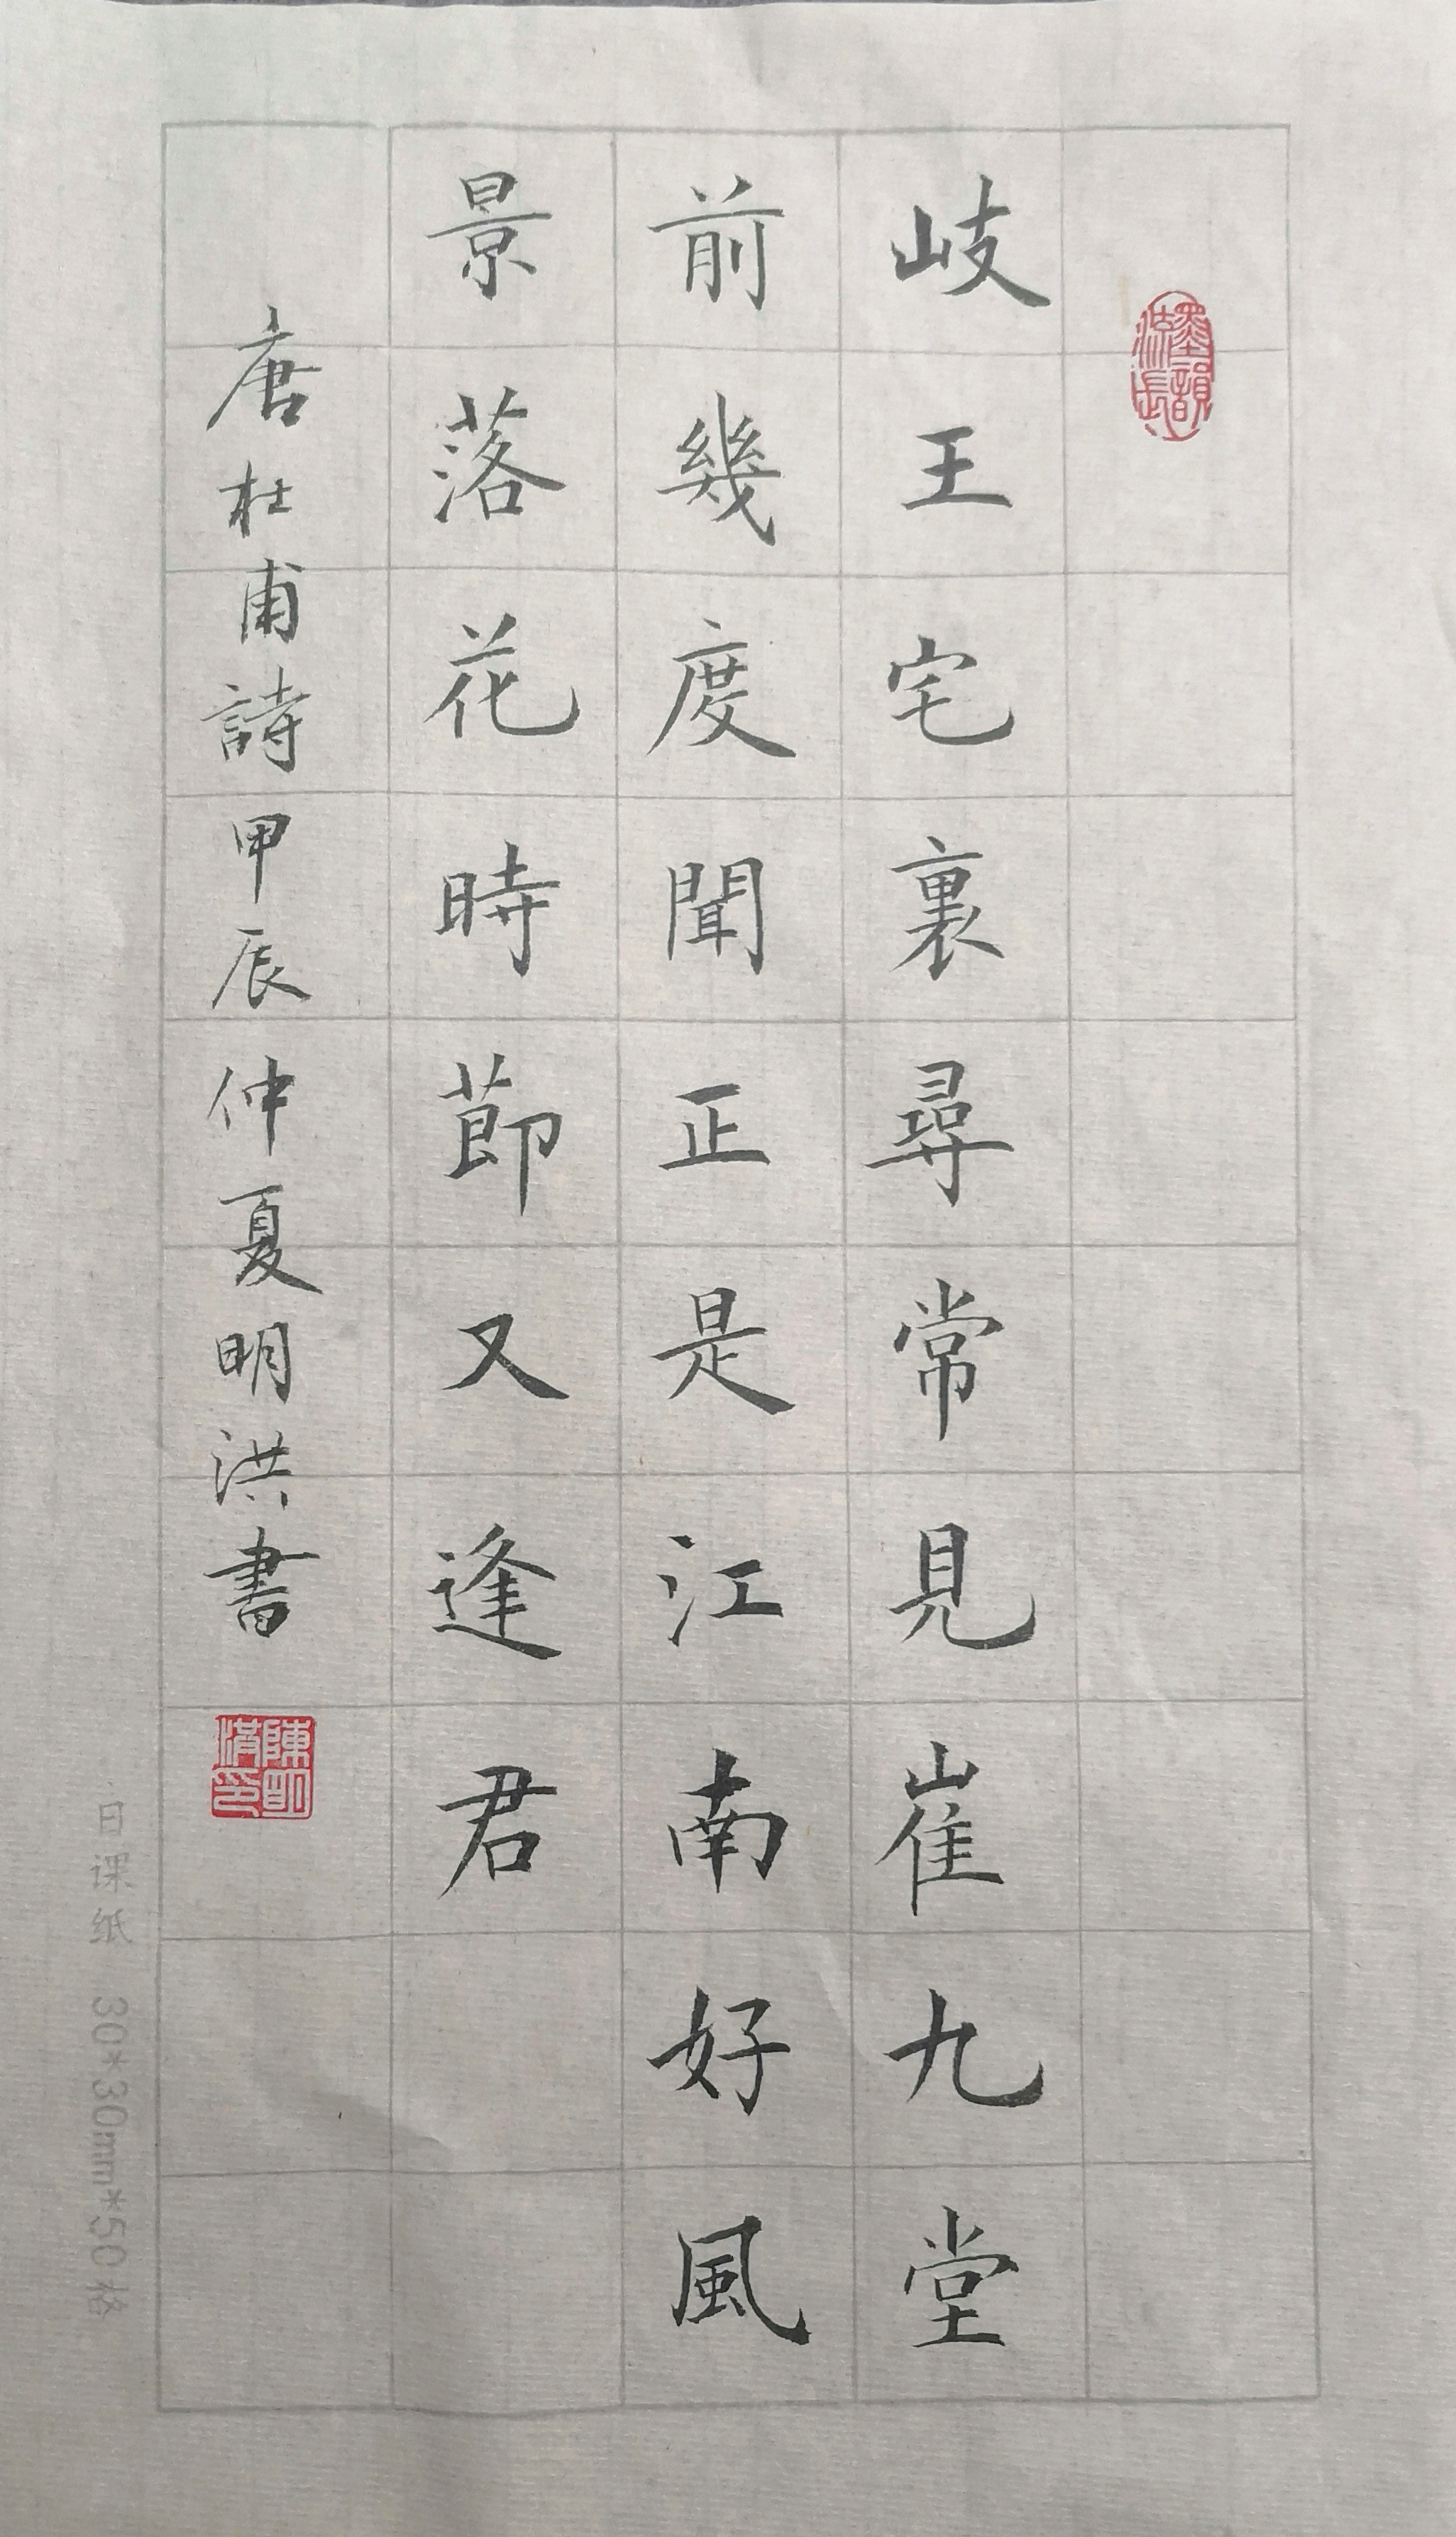 墨韻流長
岐王宅裏尋常見崔九堂
前幾度聞正是江南好風
景落花時節又逢君
唐杜甫詩甲辰仲夏明洪書
陳明洪印
日课纸 30*30mm*50格